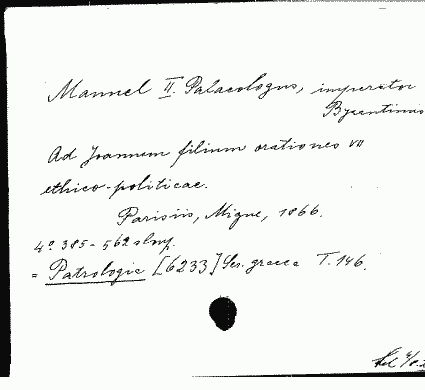 Manuel II. Palaeologus, imperator
Byzantinus
Ad Joannem filium orationes VII
ethico-politicae.
Parisiis, Migne, 1866.
4º 385-562 slmp.
= Patrologie [6233] Ser. graeca T. 146.